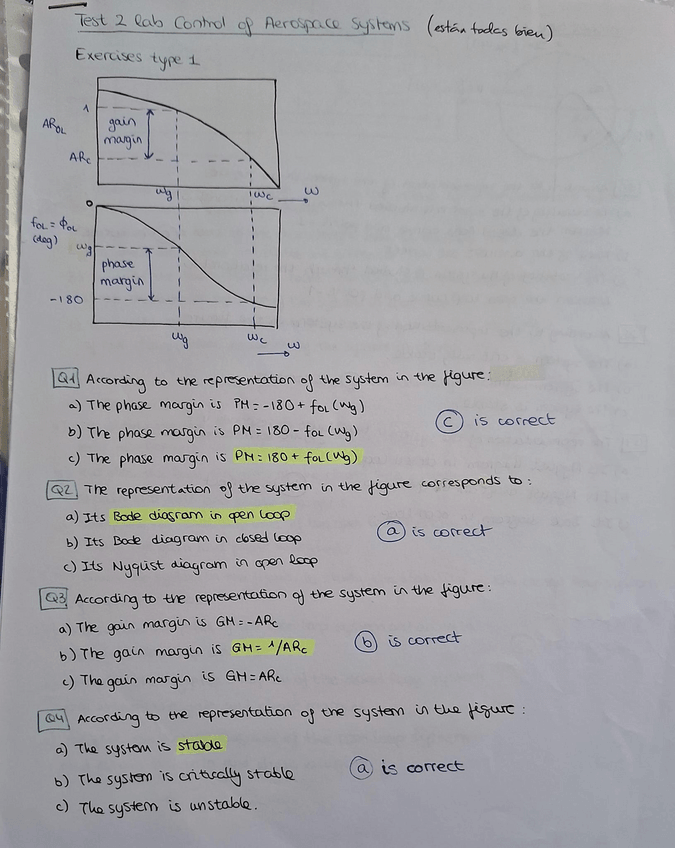 Test 2 lab Control of Aerospace Systems (están todas bien)
Exercises type 1
1
AR_OL
gain
margin
AR_c
ω_g
ω_c
ω
0
f_OL = ϕ_OL
(deg)
ω_g
phase
margin
-180
ω_g
ω_c
ω
Q1 According to the representation of the system in the figure:
a) The phase margin is PM = -180 + f_OL (ω_g)
b) The phase margin is PM = 180 - f_OL (ω_g)
c) The phase margin is PM = 180 + f_OL (ω_g)
c is correct
Q2 The representation of the system in the figure corresponds to:
a) Its Bode diagram in open loop
b) Its Bode diagram in closed loop
c) Its Nyqüist diagram in open loop
a is correct
Q3 According to the representation of the system in the figure:
a) The gain margin is GM = -AR_c
b) The gain margin is GM = 1/AR_c
c) The gain margin is GM = AR_c
b is correct
Q4 According to the representation of the system in the figure:
a) The system is stable
b) The system is critically stable
c) The system is unstable.
a is correct